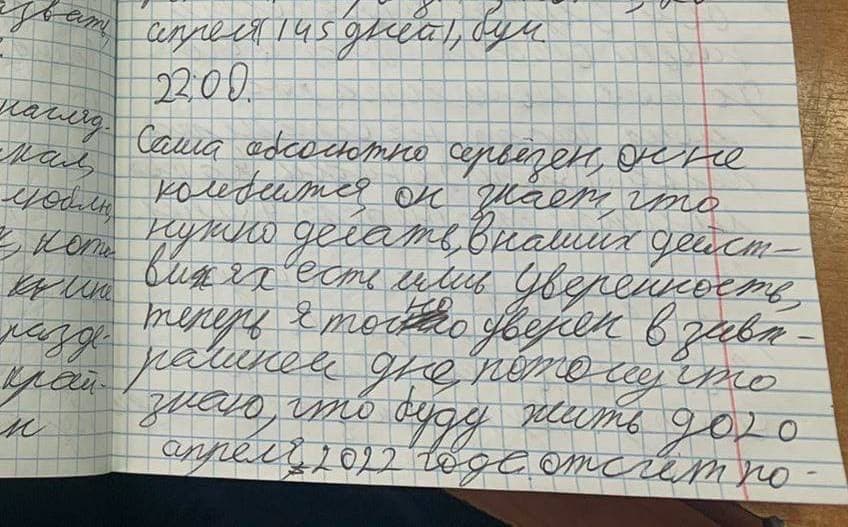 звать,
апреля(145 дней), бум
22:00.
нагляд-
Саша абсолютно серьёзен, он не
колебится, он знает, что
люблю,
нужно делать, в наших дейст-
к, кото
виях есть лишь уверенность,
теперь я точно уверен в завт-
разде-
рашнем дне, потому что
край-
знаю, что буду жить до 20
н
апреля, 2022 годе. отсчёт по-